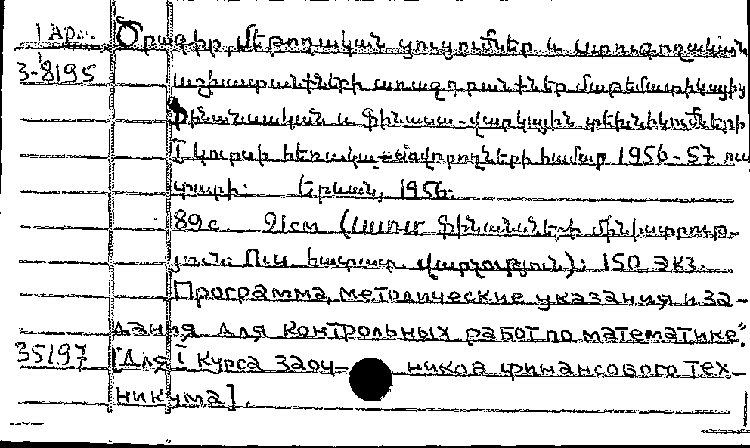 1 Арм. Ծրագիր, մեթոդական ցուցումներ և ստուգողական
3-8195 աշխատանքների առաջադրանքներ մաթեմատիկայից
ֆինանսական և ֆինանս-վարկային տեխնիկումների
I կուրսի հեռակա սովորողների համար 1956-57 ուս
տարի: Երևան, 1956.
89с. 21см (ՍՍՌՄ ֆինանսների մինիստրութ-
յուն: Ուս. հաստատ. վարչություն): 150 экз.
Программа, методические указания и за-
дания для контрольных работ по математике.
35197 [Для I курса заоч- ников финансового тех-
никума].